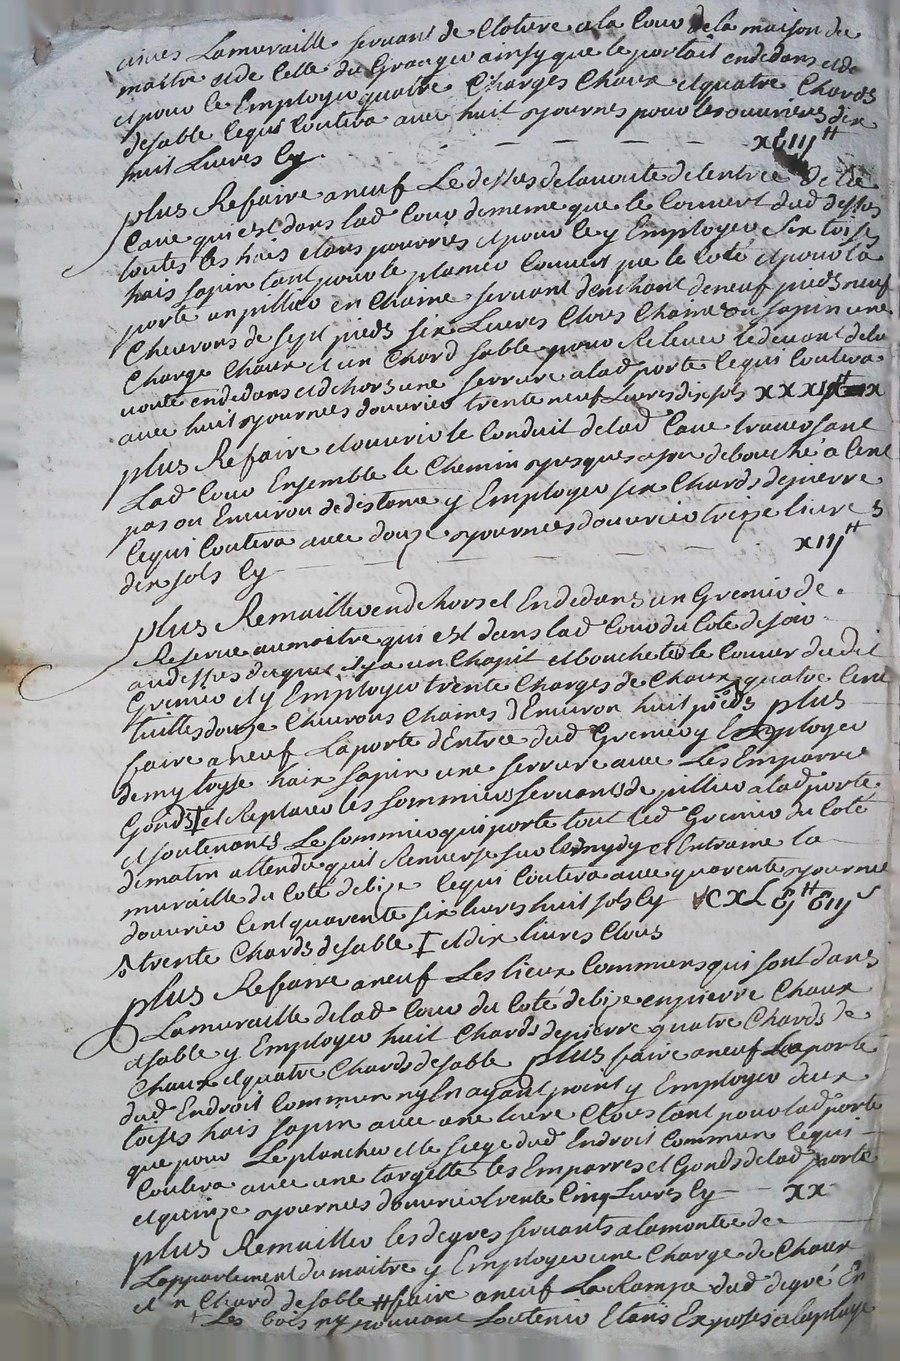 Lamuraille servant de Cloture a la Cour dela maison du
maitre et de Celle du Granger ainsy que le portail endedans et de
et pour ce Employer quatre Charges Chaux et quatre Chards
desable lequi Coutera avec huit journes pour les ouvriers dix
huit Livres Cy
plus Refaire aneuf Le dessus delavoute delentree de la
Cave qui est dans lad Cour dememe que le Couvert dud dessus
toutes les hais etans pourries et pour ce y Employer Six toises
hais sapin tant pour le plancer Couvert que le Coté et pour la
porte un pillier en Chaine servant denchant deneuf pieds neuf
Chevrons de sept pieds six Livres Clous Chaine ou sapin une
Charge Chaux et un Chard sable pour Relever ledevant dela
voute endedans et dehors une serrure alad porte lequi Coutera
avec huit journees douvrier trente neuf Livres dix sols
plus Refaire et ouvrir le Conduit delad Cave traversant
Lad Cour Ensemble le Chemin jusques a son debouché a Cent
pas ou Environ dedistance y Employer six Chards depierre
lequi Coutera avec douze journees douvrier treize livres
dix sols Cy xiij ₶
plus Remailler endehors et Endedans un Grenier de
Reserve aumaitre qui est dans lad Cour du Coté de soir
audessus duquel il y a un Chapit et boucheter le Couver dudit
Grenier et y Employer trente Charges de Chaux quatre Cent
tuilles douze Chevrons Chaines d'Environ huit pieds plus
faire aneuf La porte d'Entree dud Grenier y Employer
demy toyse haix sapin une serrure avec Les Emparres
Gonds et Replacer les sommiers servants de pillier a lad porte
et soutenants Le sommier qui porte tout led Grenier du Coté
dematin attendu quil Renverse sur le midy et Entraine la
muraille du Coté debize lequi Coutera avec quarente journee
douvrier Cent quarente six livres huit sols Cy
trente Chards desable et dix livres Clous
plus Refaire aneuf Les lieux Communs qui sont dans
Lamuraille delad Cour du Coté debize enpierre Chaux
et sable y Employer huit Chards depierre quatre Chards de
Chaux et quatre Chards desable plus faire aneuf La porte
dud Endroit Commun ny En ayant point y Employer deux
toises hais sapin avec une livre Clous tant pour lad porte
que pour Le plancher et le siege dud Endroit Commun lequi
Coutera avec une targette les Emparres et Gonds delad porte
et quinze journees douvrier trente Cinq Livres Cy xx
plus Remailler les degres servants a lamontee de
Lappartement du maitre y Employer une Charge de Chaux
et n Chard de sable faire aneuf La Rampe dud degré En
Les bois ny pouvant soutenir Etans Exposés a la pluye